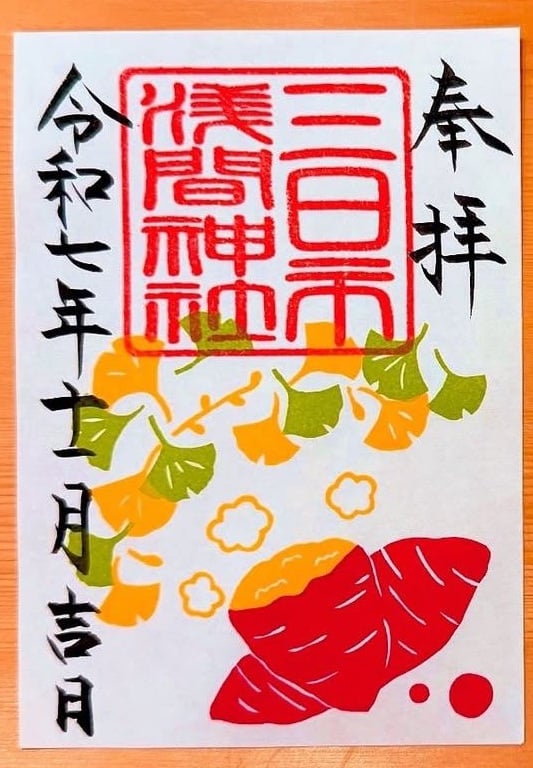 奉拝
三日市
浅間神社
令和七年十一月吉日